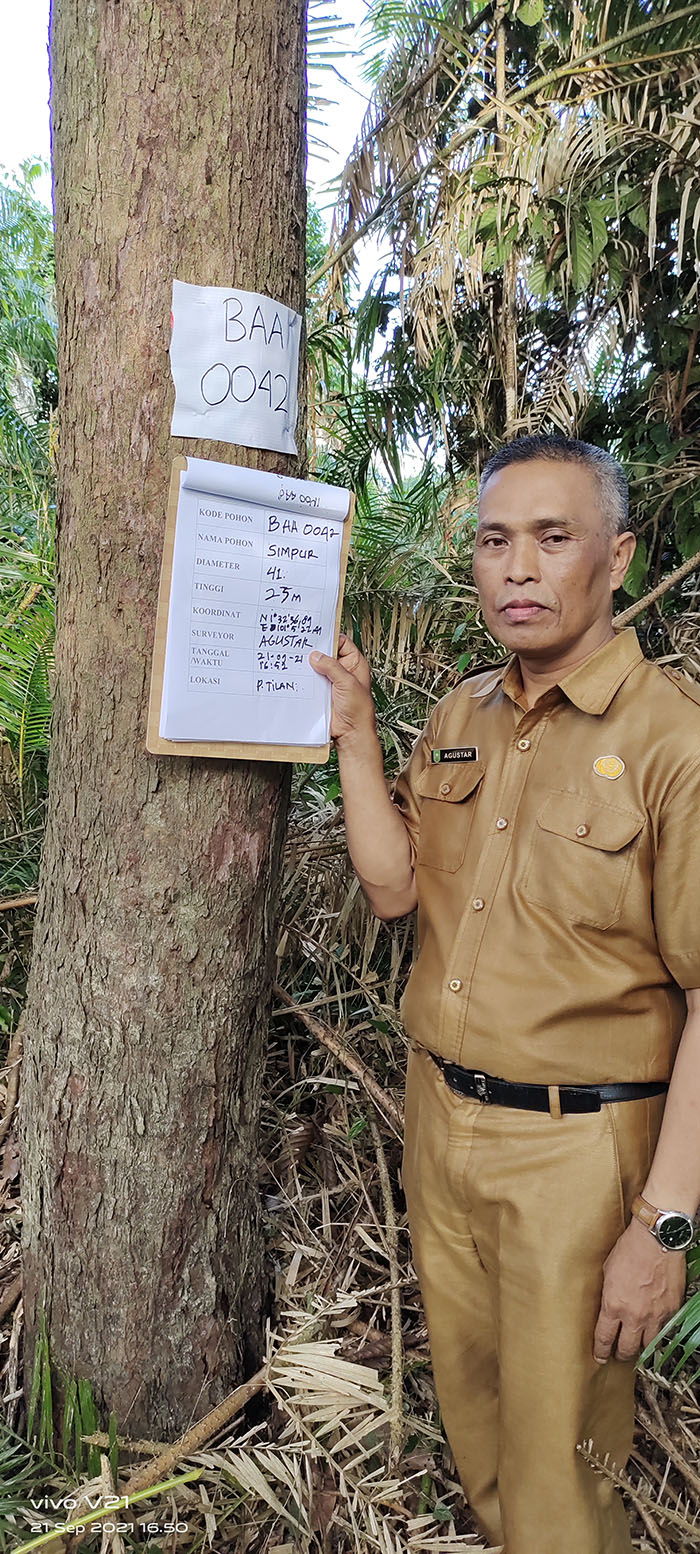 BAA
0042
KODE POHON BAA 0042
NAMA POHON SIMPUR
DIAMETER 41.
TINGGI 23m
KOORDINAT N 1° 32' 36,89
E 101° 5'
SURVEYOR AGUSTAR
TANGGAL 21-09-21
/WAKTU 16:51
LOKASI P. TILAN:
AGUSTAR
vivo V21
21 Sep 2021 16.50